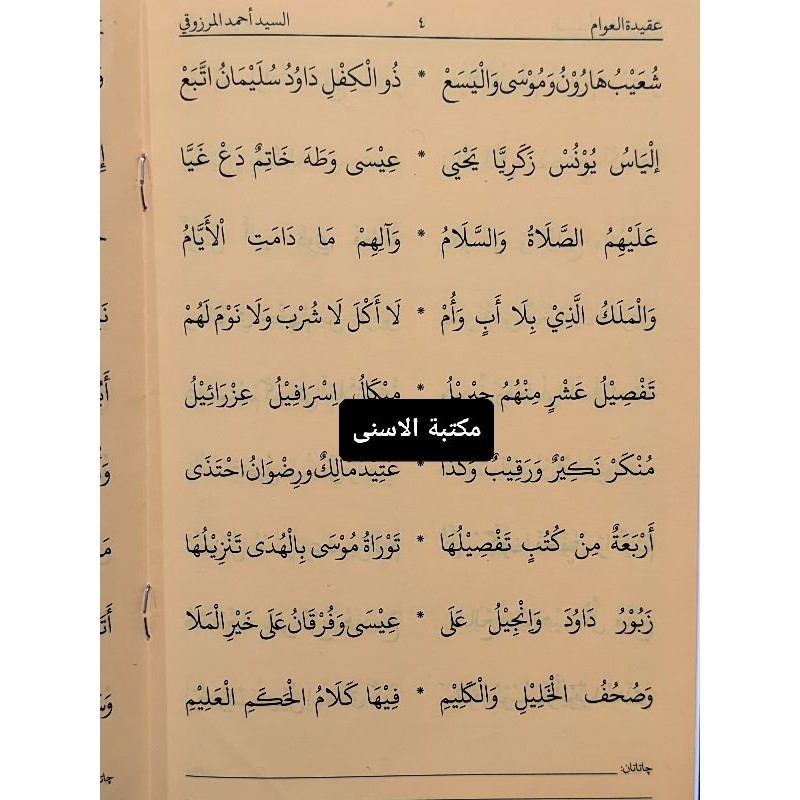 عقيدة العوام ٤ السيد أحمد المرزوقي
شُعَيْبُ هَارُوْنُ وَمُوْسَى وَالْيَسَعْ * ذُو الْكِفْلِ دَاوُدُ سُلَيْمَانُ اتَّبَعْ
إلْيَاسُ يُوْنُسْ زَكَرِيَّا يَحْيَى * عِيْسَى وَطَهَ خَاتِمٌ دَعْ غَيَّا
عَلَيْهِمُ الصَّلَاةُ وَالسَّلَامُ * وَآلِهِمْ مَا دَامَتِ الْأَيَّامُ
وَالْمَلَكُ الَّذِيْ بِلَا أَبٍ وَأُمْ * لَا أَكْلَ لَا شُرْبَ وَلَا نَوْمَ لَهُمْ
تَفْصِيْلُ عَشْرٍ مِنْهُمُ جِبْرِيْلُ * مِيْكَالُ اِسْرَافِيْلُ عِزْرَائِيْلُ
مكتبة الاسنى
مُنْكَرْ نَكِيْرٌ وَرَقِيْبٌ وَكَذَا * عَتِيْد مَالِكٌ ورِضْوَانُ احْتَذَى
أَرْبَعَةٌ مِنْ كُتُبٍ تَفْصِيْلُهَا * تَوْرَاةُ مُوْسَى بِالْهُدَى تَنْزِيْلُهَا
زَبُوْرُ دَاوُدَ وَاِنْجِيْلُ عَلَى * عِيْسَى وَفُرْقَانُ عَلَى خَيْرِ الْمَلَا
وَصُحُفُ الْخَلِيْلِ وَالْكَلِيْمِ * فِيْهَا كَلَامُ الْحَكَمِ الْعَلِيْمِ
چاتاتان: